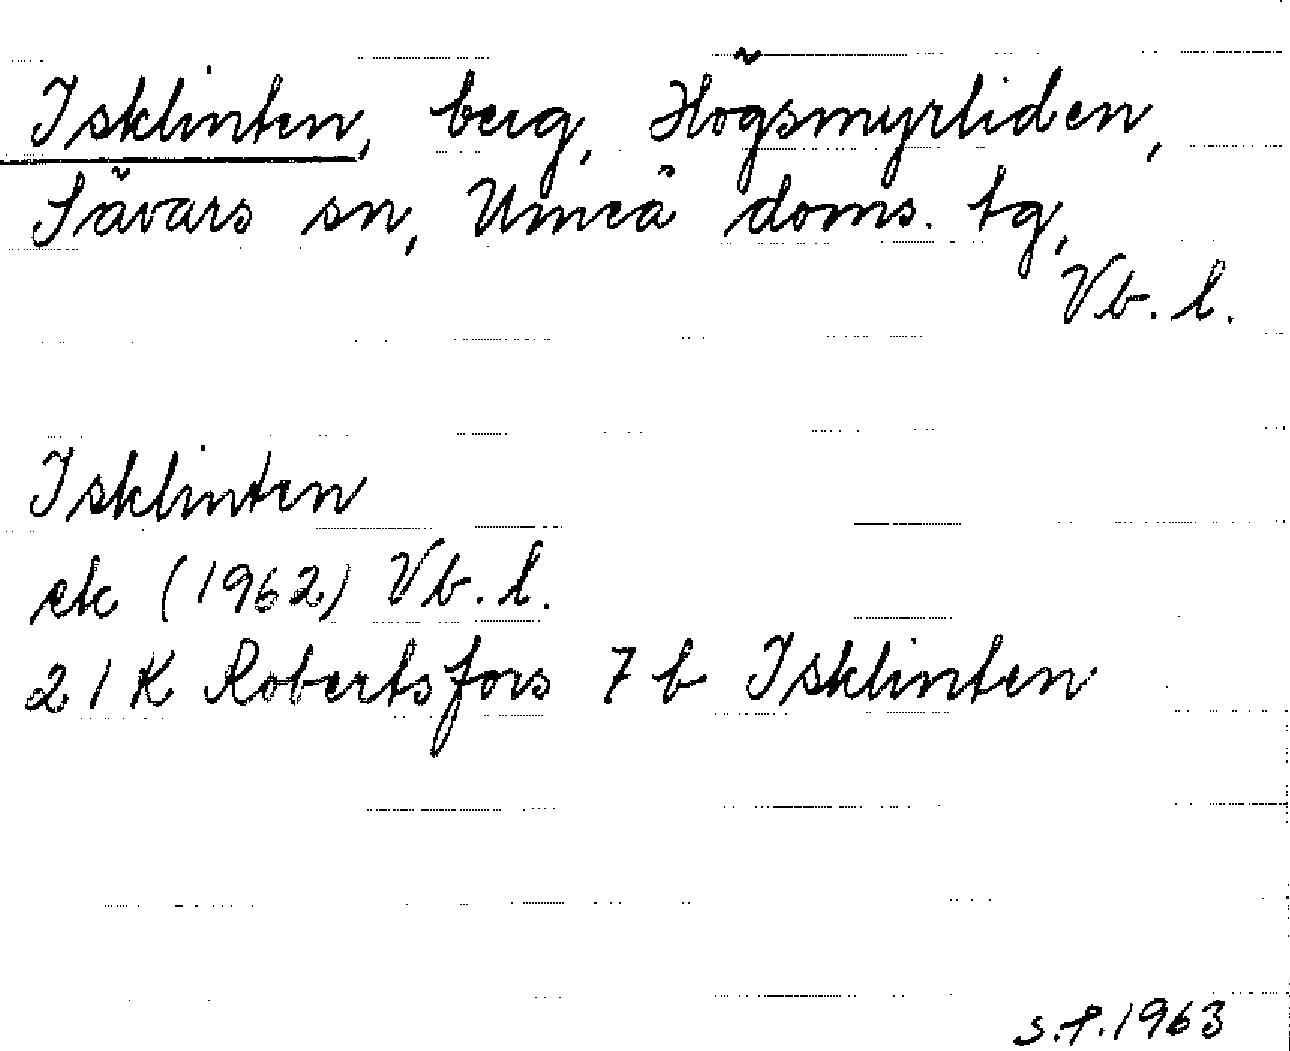 Isklinten, berg, Högsmyrliden,
Sävars sn, Umeå doms. tg,
Vb. l.
Isklinten
ek (1962) Vb. l.
21 K Robertsfors 7 b Isklinten
s.f. 1963